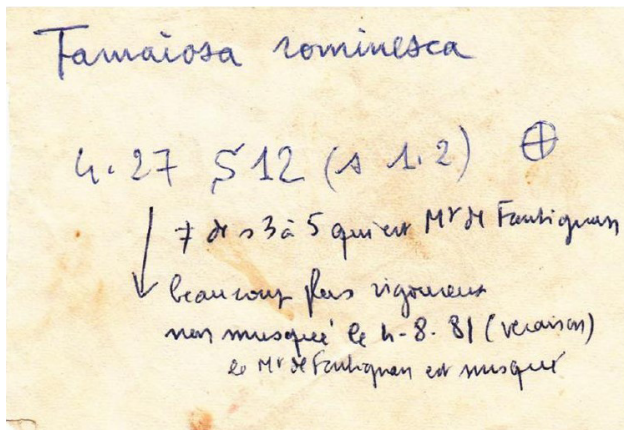 Tamaiosa rominesca
4.27 S12 (s 1.2) ⊕
≠ de s 3 à 5 qui est Mt de Frontignan
beaucoup plus vigoureux
non musqué le 4-8-81 (veraison)
le Mt de Frontignan est musqué